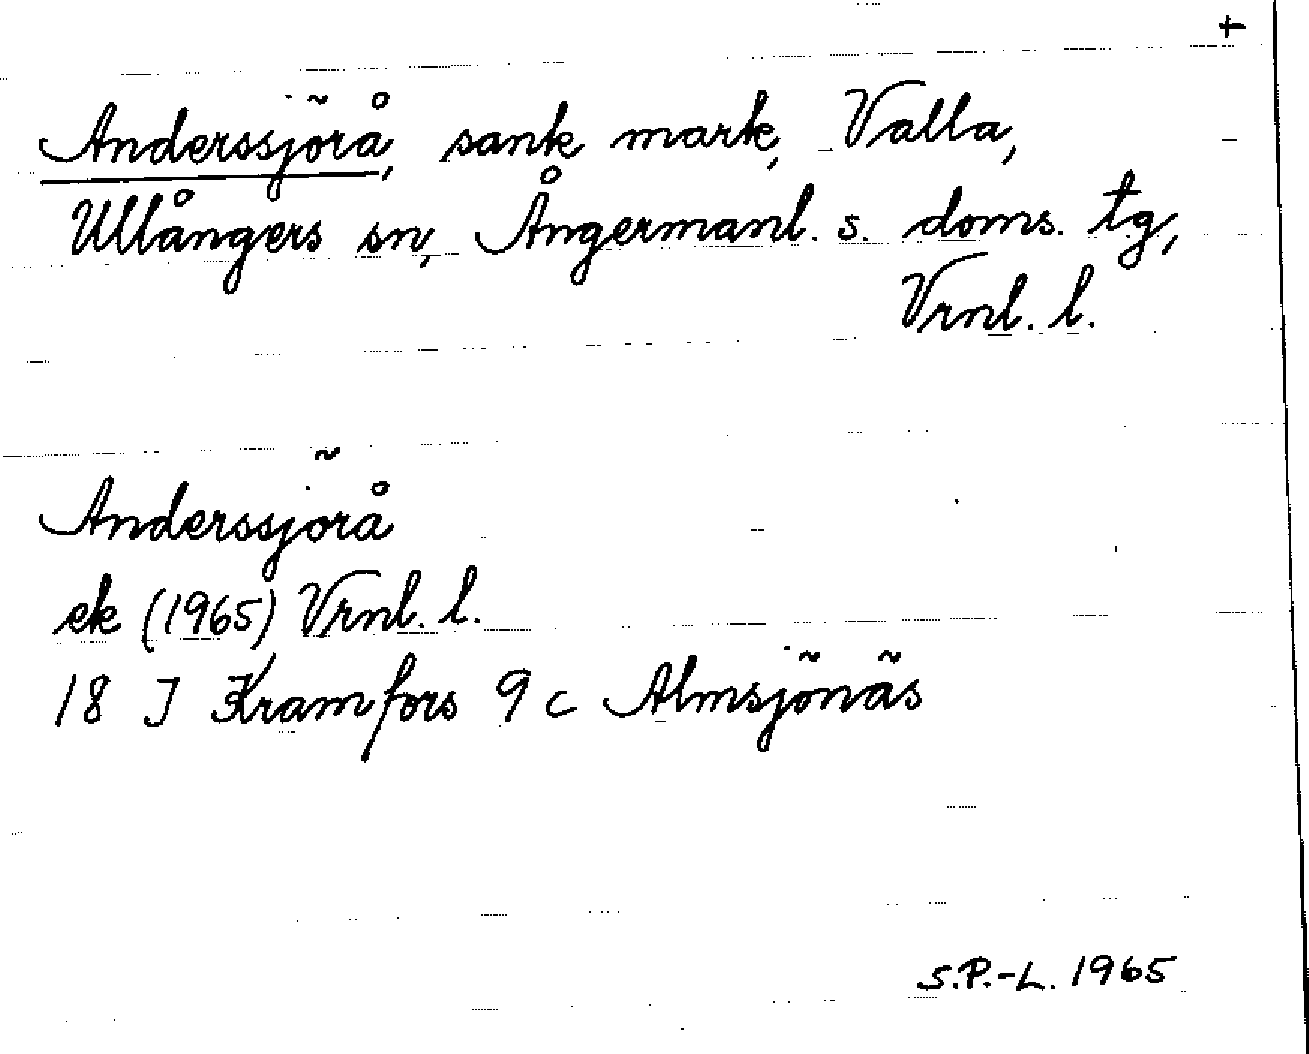 +
Anderssjörå, sank mark, Valla,
Ullångers sn, Ångermanl. s. doms. tg,
Vrnl. l.
Anderssjörå
ek (1965) Vrnl. l.
18 J Kramfors 9 c Almsjönäs
S.P.-L. 1965